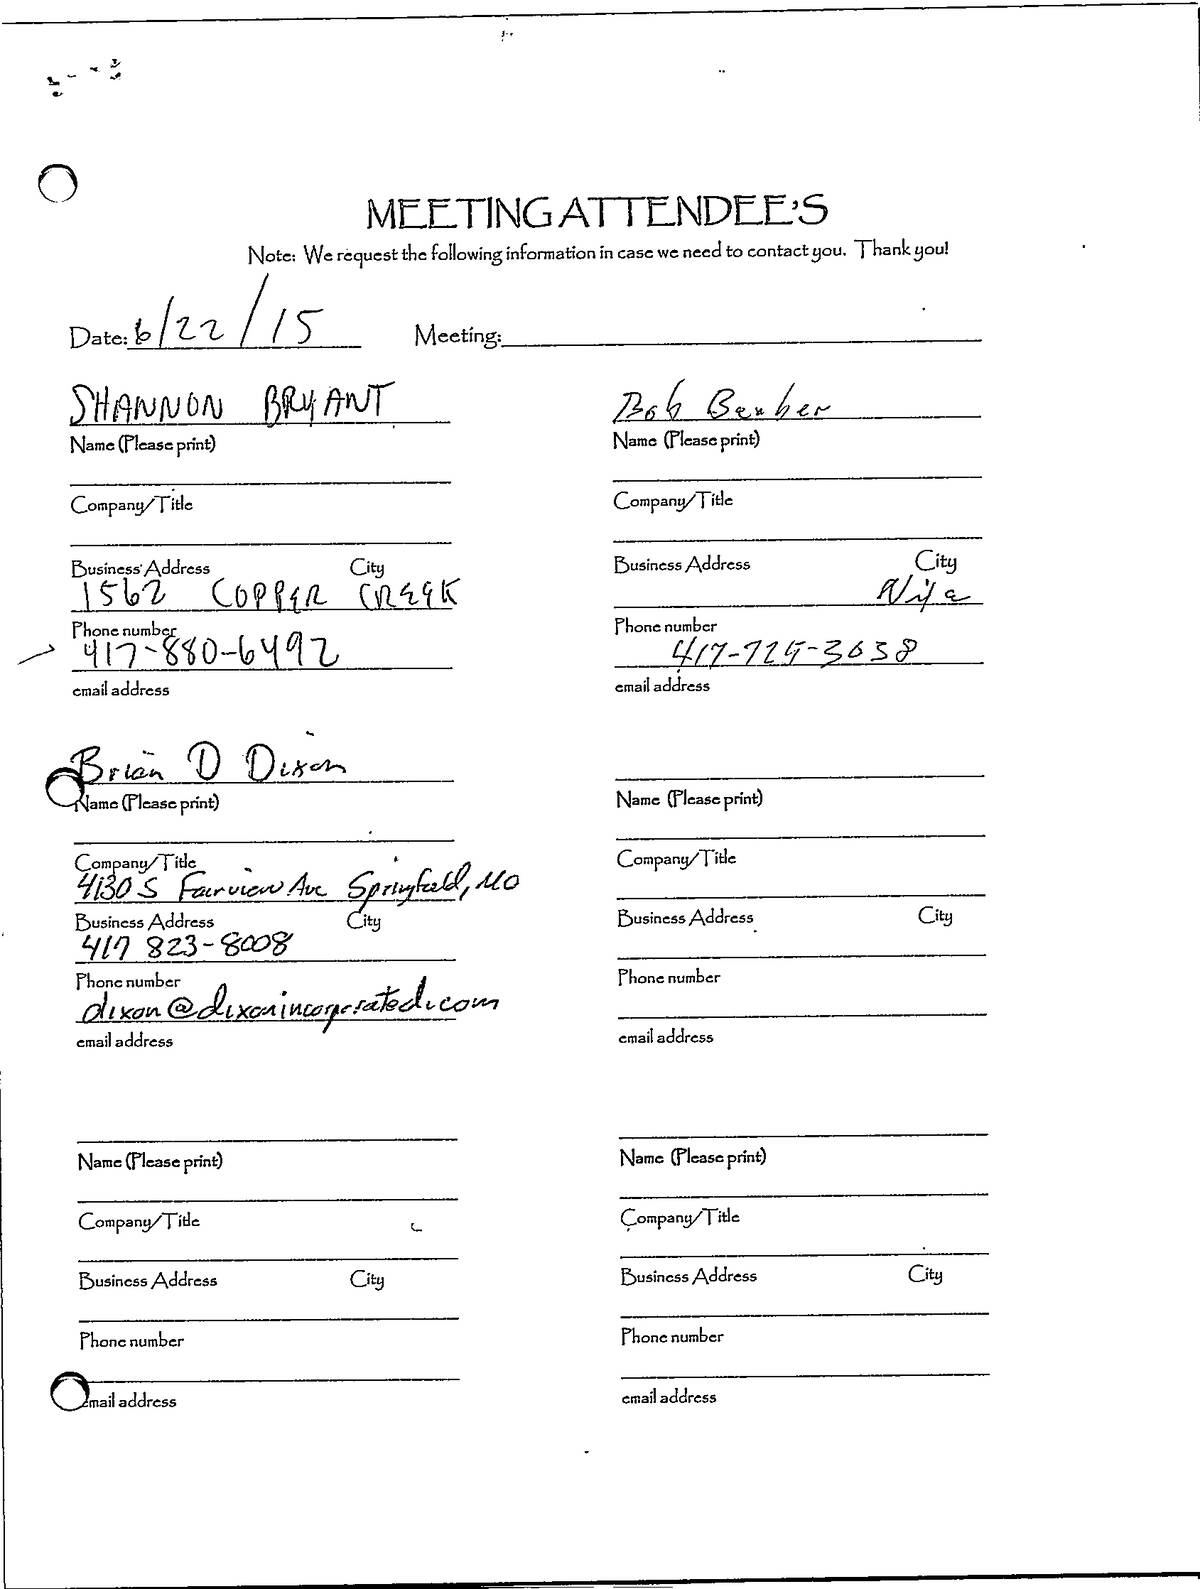 MEETING ATTENDEE'S
Note: We request the following information in case we need to contact you. Thank you!
Date: 6/22/15 Meeting:
SHANNON BRYANT
Name (Please print)
Company/Title
Business Address City
1562 COPPER CREEK
Phone number
417-880-6492
email address
Bob Barber
Name (Please print)
Company/Title
Business Address City
Nixa
Phone number
417-725-3038
email address
Brian D Dixon
Name (Please print)
Company/Title
4130 S Fairview Ave Springfield, MO
Business Address City
417 823-8008
Phone number
dixon@dixonincorporated.com
email address
Name (Please print)
Company/Title
Business Address City
Phone number
email address
Name (Please print)
Company/Title
Business Address City
Phone number
email address
Name (Please print)
Company/Title
Business Address City
Phone number
email address